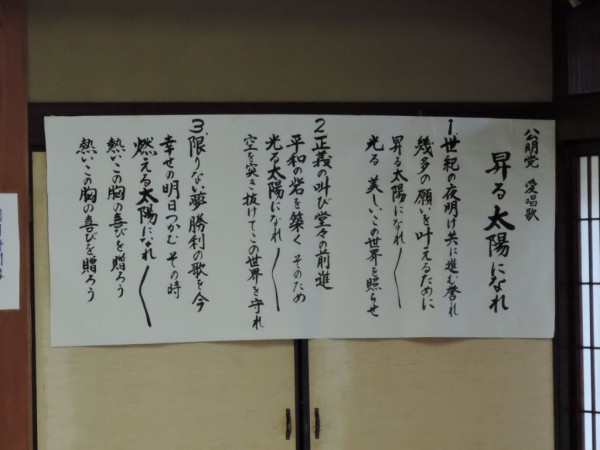 公明党 愛唱歌
昇る太陽になれ
1.世紀の夜明け共に進む誉れ
幾多の願いを叶えるために
昇る太陽になれ〱
光る 美しいこの世界を照らせ
2.正義の叫び堂々の前進
平和の砦を築く そのため
光る太陽になれ〱
空を突き抜けてこの世界を守れ
3.限りない夢 勝利の歌を今
幸せの明日つかむ その時
燃える太陽になれ〱
熱いこの胸の喜びを贈ろう
熱いこの胸の喜びを贈ろう